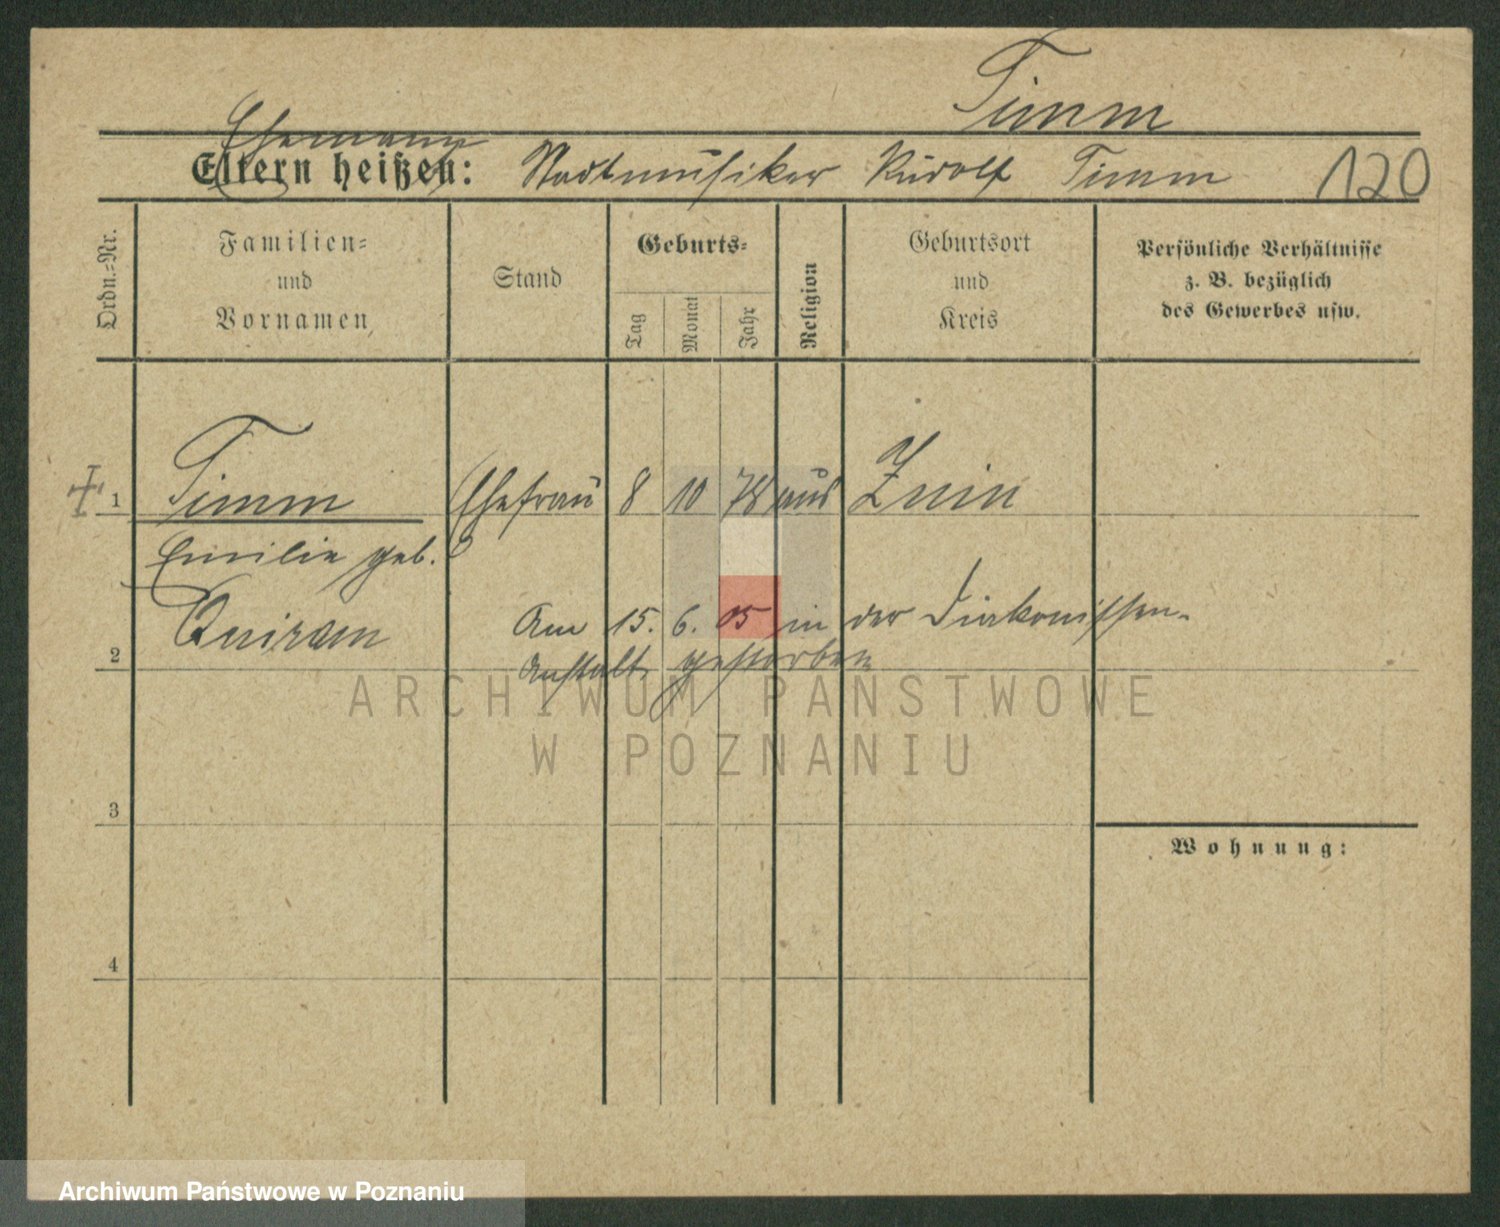 Timm
Ehemann
Eltern heißen: Stadtmusiker Rudolf Timm 120
Ordn.=Nr.
Familien=
und
Vornamen
Stand
Geburts=
Tag
Monat
Jahr
Religion
Geburtsort
und
Kreis
Persönliche Verhältnisse
z. B. bezüglich
des Gewerbes usw.
1 Timm Ehefrau 8 10 78 aus Znin
Emilie geb.
Quiram
Am 15. 6. 05 in der Diakonissen-
2
Anstalt gestorben
ARCHIWUM PAŃSTWOWE
W POZNANIU
3
Wohnung:
4
Archiwum Państwowe w Poznaniu